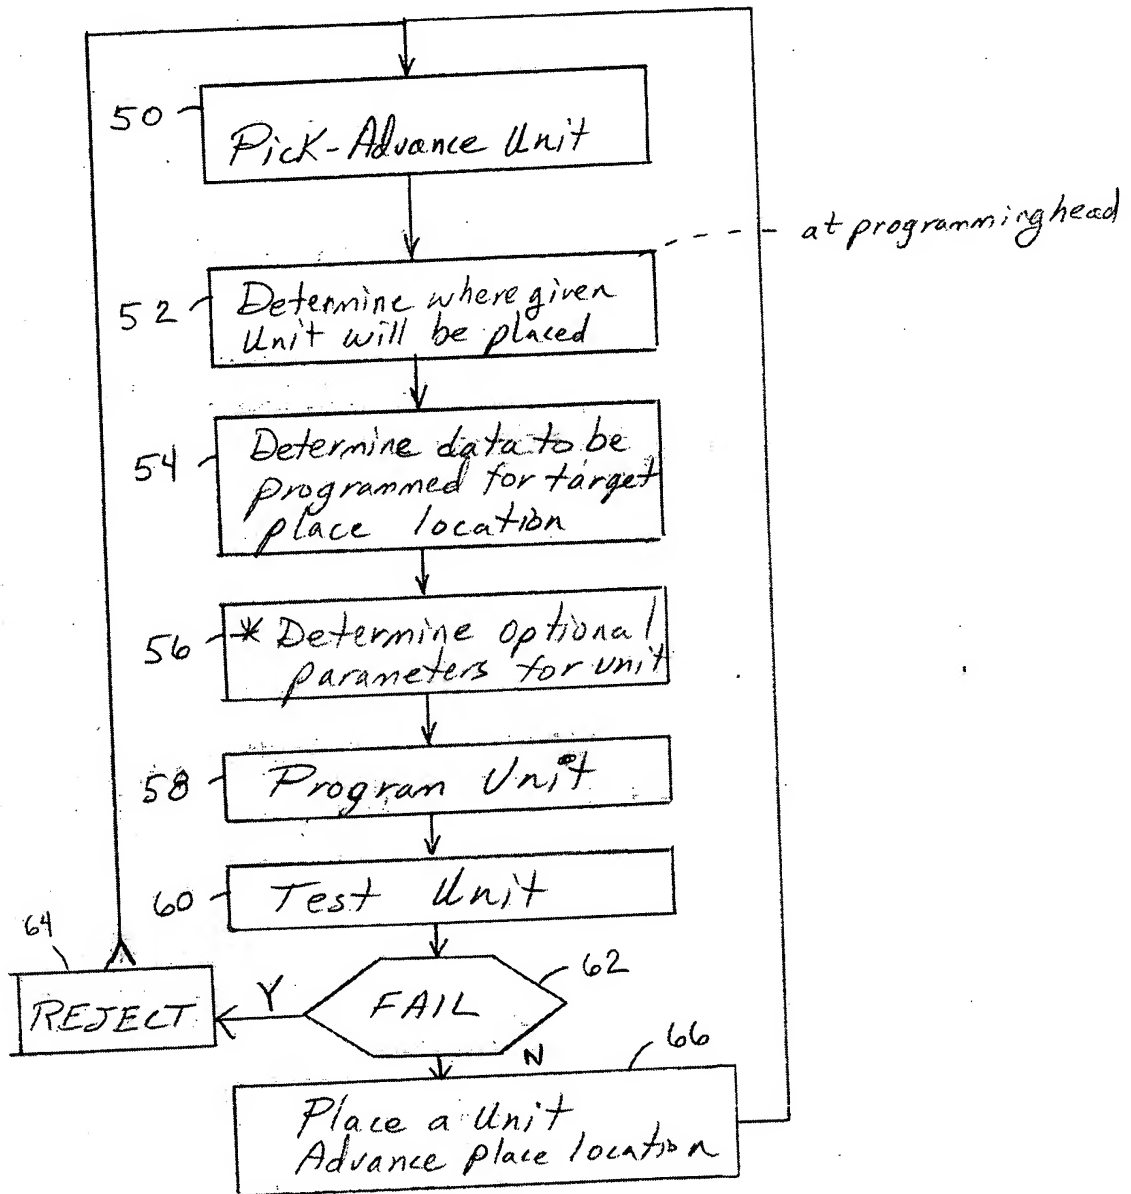 50
Pick-Advance Unit
at programming head
52
Determine where given
Unit will be placed
54
Determine data to be
programmed for target
place location
56
* Determine optional
parameters for unit
58
Program Unit
60
Test Unit
64
REJECT
Y
FAIL
62
N
66
Place a Unit
Advance place location